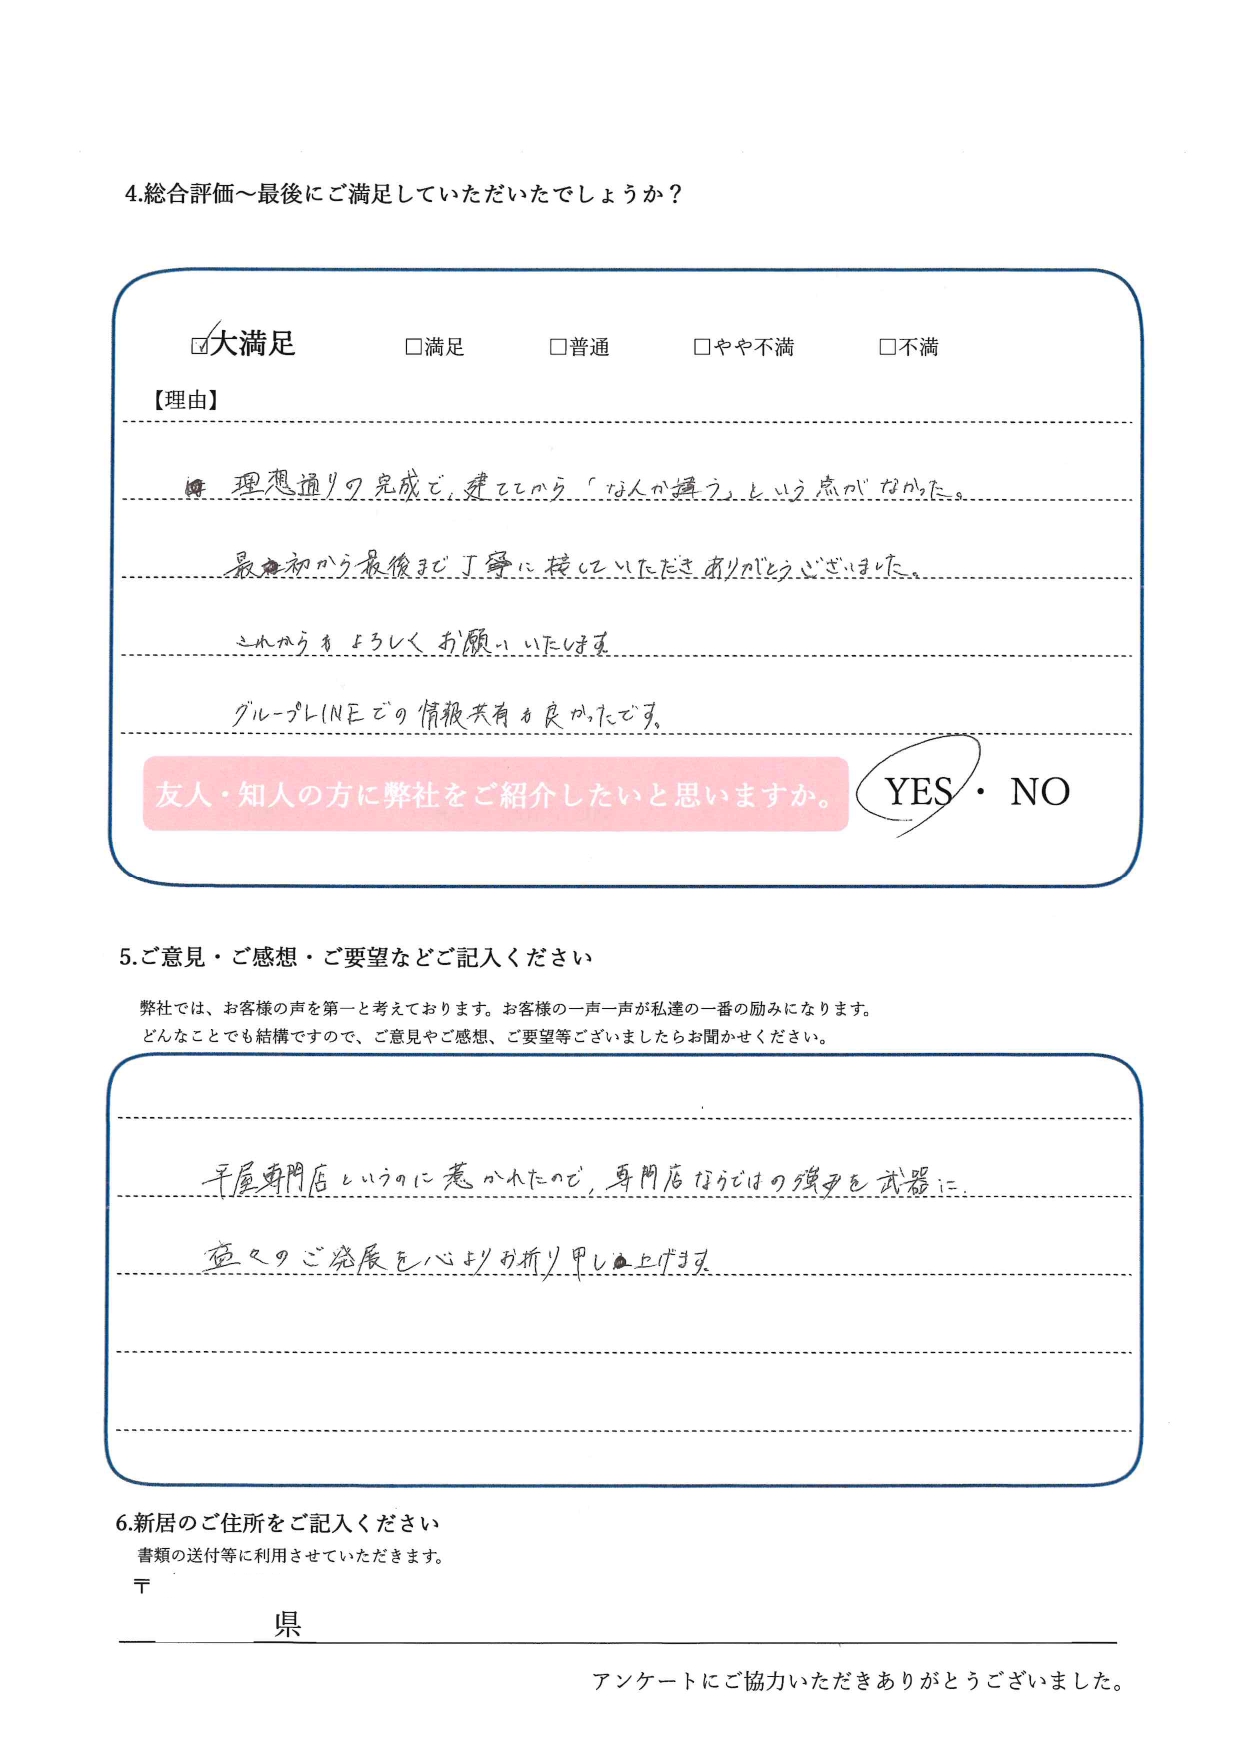 4.総合評価～最後にご満足していただいたでしょうか？
☑大満足 □満足 □普通 □やや不満 □不満
【理由】
理想通りの完成で、建ててから「なんか違う」という点がなかった。
最初から最後まで丁寧に接していただきありがとうございました。
これからもよろしくお願いいたします。
グループLINEでの情報共有も良かったです。
友人・知人の方に弊社をご紹介したいと思いますか。 YES・NO
5.ご意見・ご感想・ご要望などご記入ください
弊社では、お客様の声を第一と考えております。お客様の一声一声が私達の一番の励みになります。
どんなことでも結構ですので、ご意見やご感想、ご要望等ございましたらお聞かせください。
平屋専門店というのに惹かれたので、専門店ならではの強みを武器に、
益々のご発展を心よりお祈り申し上げます。
6.新居のご住所をご記入ください
書類の送付等に利用させていただきます。
〒
県
アンケートにご協力いただきありがとうございました。